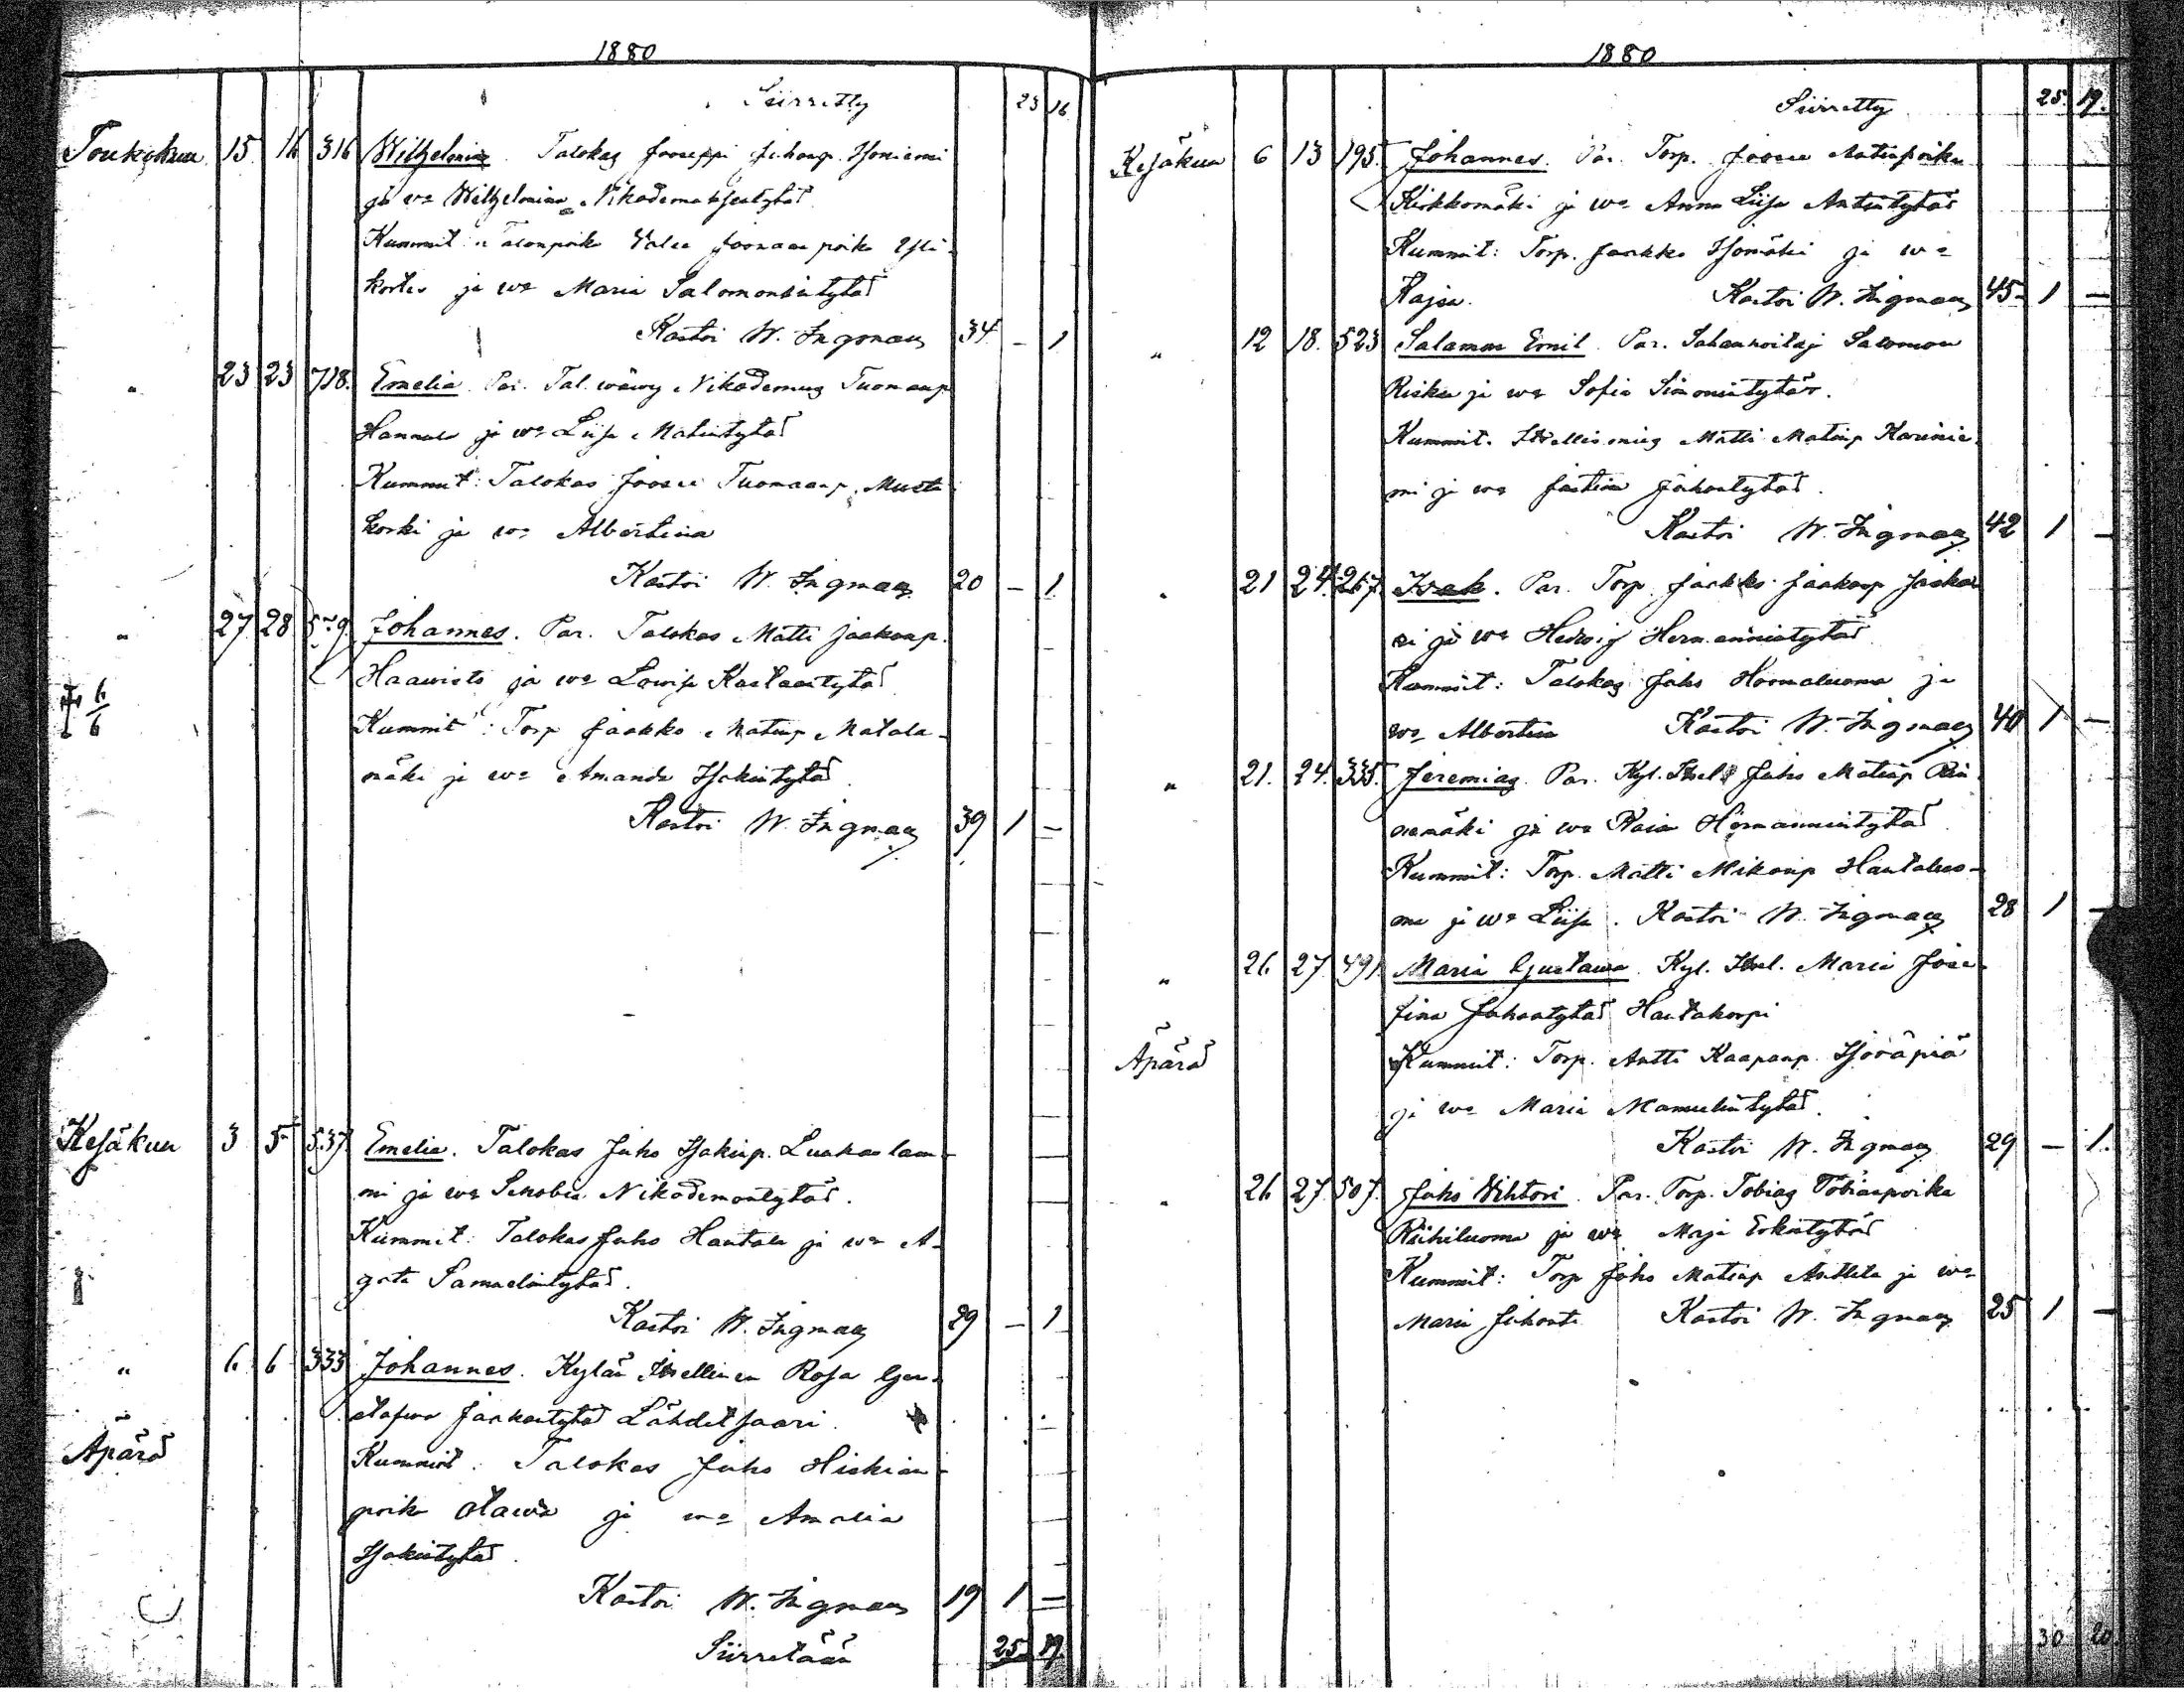 1880
Siirretty 23 16
Toukokuu 15 16 316 Wilhelmina. Talokas Jooseppi Juhanp. Isoniemi
ja wo Wilhelmina Nikodemuksentytär
Kummit: Talonpoika Joonaan poika Yli-
kortes ja wo Maria Salomonintytär
Kastoi W. Ingman 34 – 1
" 23 23 718. Emelia. Par. Tal. wäwy Nikodemus Tuomaanp.
Hannula ja wo Liisa Matintytär
Kummit: Talokas Joose Tuomaanp. Musta
korki ja wo Albertina
Kastoi W. Ingman 20 – 1
" 27 28 Johannes. Par. Talokas Matti Jaakonp.
Haawisto ja wo Lowisa Kustaantytär
6/6 Kummit: Torp Jaakko Matinp. Matala-
mäki ja wo Amanda Isakintytär
Kastoi W. Ingman 39 1 –
Kesäkuu 3 5 537. Emelia. Talokas Juho Isakinp. Luukaslam-
mi ja wo Senobia Nikodemontytär.
Kummit: Talokas Juho Hautala ja wo A-
gata Samuelintytär.
Kastoi W. Ingman 29 – 1
" 6 6 333 Johannes. Kylän Itsellinen Rosa Gus-
tafwa Jaakontytär Lähdetsaari.
Äpärä Kummit: Talokas Juho Hiskian-
poika Otawa ja wo Amalia
Isakintytär
Kastoi W. Ingman 19 1 –
Siirretään 25 19.
1880
Siirretty 25. 19.
Kesäkuu 6 13 195. Johannes. Par. Torp. Joose Matinpoika
Kirkkomäki ja wo Anna Liisa Antintytär
Kummit: Torp. Jaakko Isomäki ja wo
Kajsa. Kastoi W. Ingman 45 1 –
" 12 18. 523 Salamon Emil. Par. Sahanhoitaj Salomon
Risku ja wo Sofia Simonintytär.
Kummit. Itsellismies Matti Matinp. Karinie-
mi ja wo Justina Juhontytär.
Kastoi W. Ingman 42 1 –
" 21 24. 267. Isak. Par. Torp. Jaakko Jaakonp
ja wo Hedwig Hermannintytär
Kummit: Talokas Juho Hormaluoma ja
wo Albertina Kastoi W. Ingman 40 1 –
" 21. 24. 335. Jeremias. Par. Kyl. Itsel. Juho Matinp.
nemäki ja wo Kaisa Hermannintytär
Kummit: Torp. Matti Mikonp Hautaluo-
ma ja wo Liisa. Kastoi W. Ingman 28 1 –
" 26 27 491. Maria Gustawa. Kyl. Itsel. Maria Jose-
fina Juhontytär Hautakorpi
Äpärä Kummit: Torp. Antti Kaapanp. Isoräpiä
ja wo Maria Mamuelintytär.
Kastoi W. Ingman 29 – 1.
" 26 27. 507. Juho Wihtori. Par. Torp. Tobias Tobiaspoika
Riihiluoma ja wo Maja Erkintytär
Kummit: Torp Juho Matinp Anttila ja wo
Maria Juhont. Kastoi W. Ingman 25 1 –
30 20.